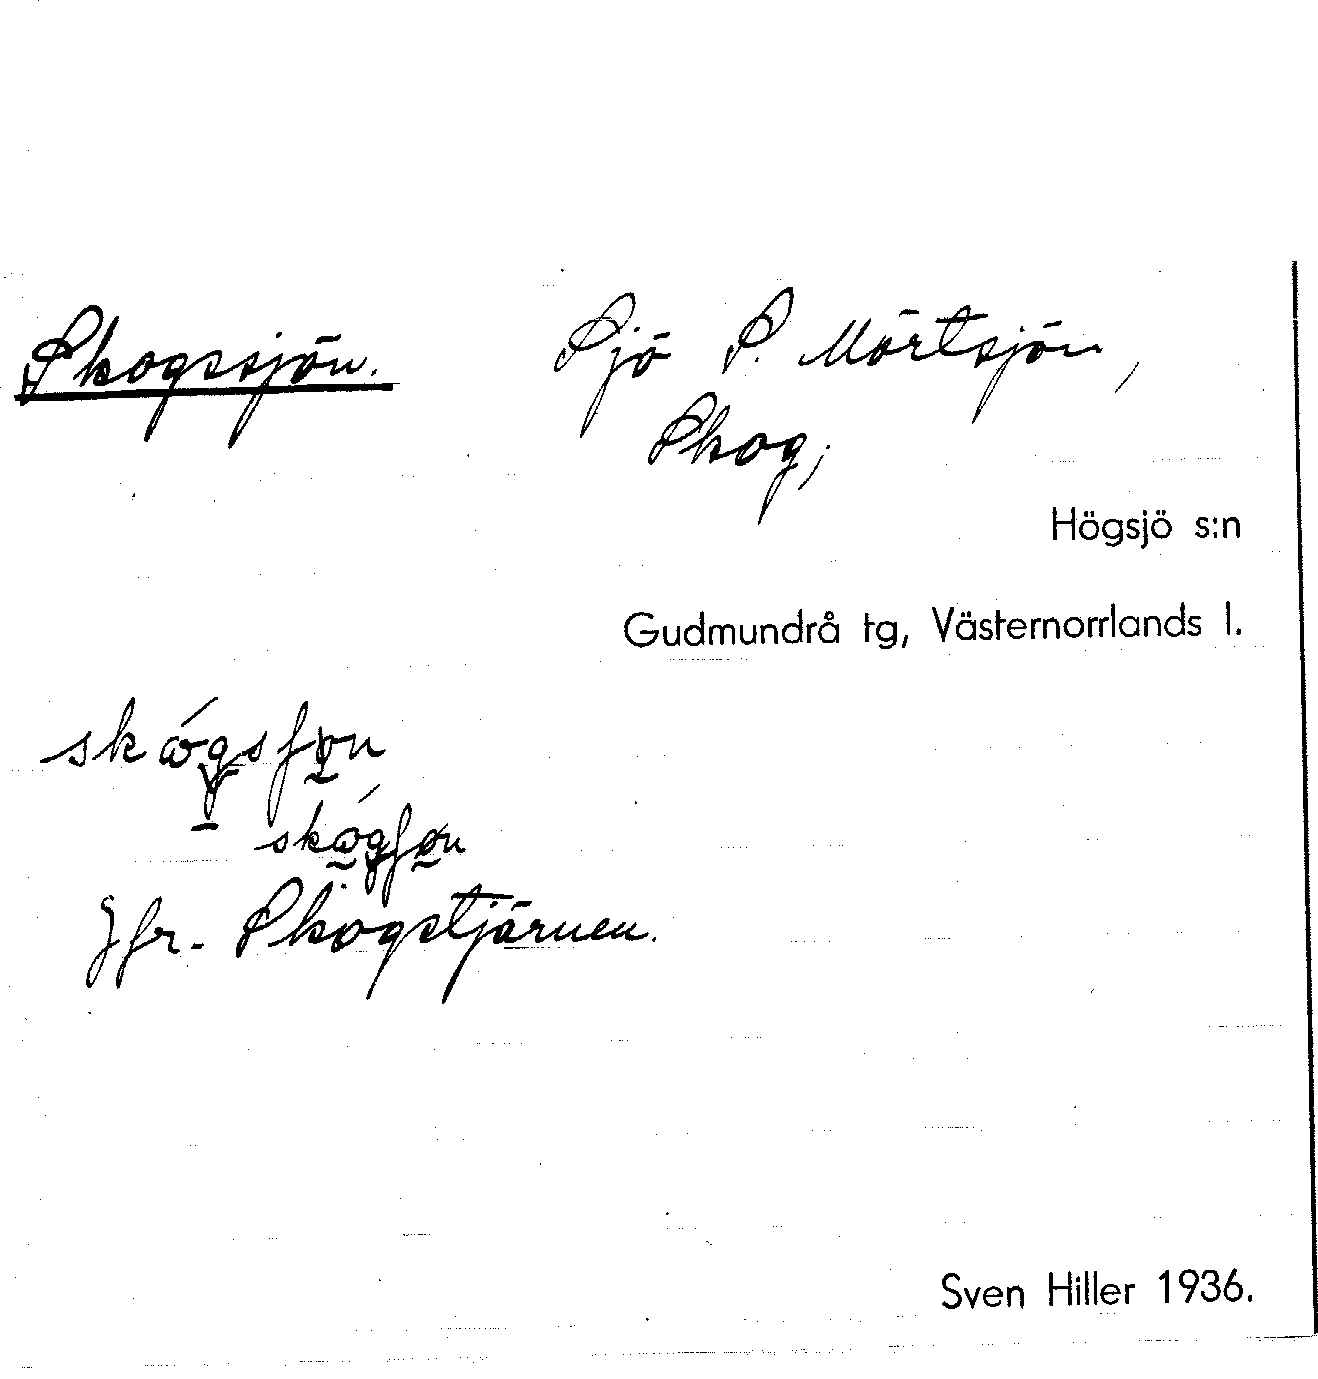 Skogssjön. Sjö S. Mörtsjön,
Skog;
Högsjö s:n
Gudmundrå tg, Västernorrlands l.
Jfr. Skogstjärnen.
Sven Hiller 1936.